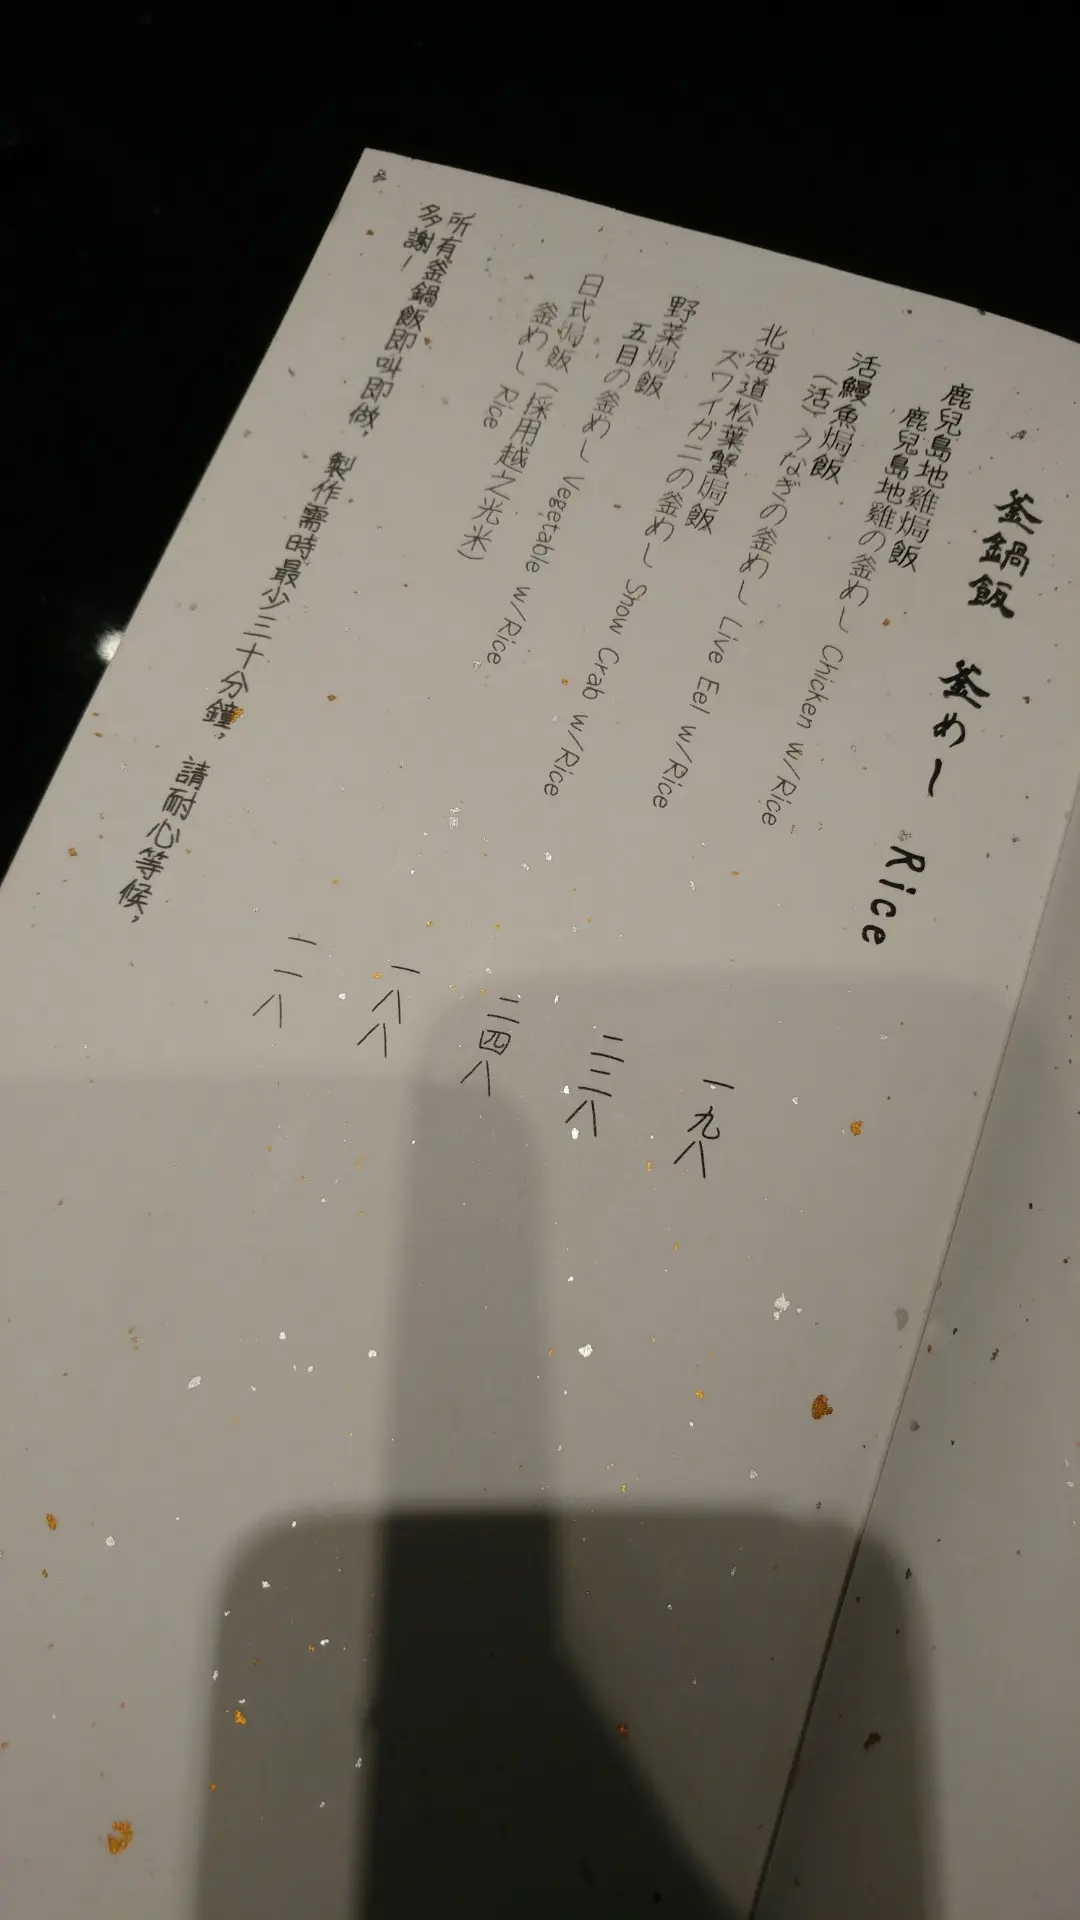 釜鍋飯 釜めし Rice
鹿兒島地雞焗飯
鹿兒島地雞の釜めし Chicken w/Rice
一九八
活鰻魚焗飯
(活)うなぎの釜めし Live Eel w/Rice
二三八
北海道松葉蟹焗飯
ズワイガニの釜めし Snow Crab w/Rice
二四八
野菜焗飯
五目の釜めし Vegetable w/Rice
一八八
日式焗飯(採用越之光米)
釜めし Rice
一一八
所有釜鍋飯即叫即做，製作需時最少三十分鐘，請耐心等候，
多謝！